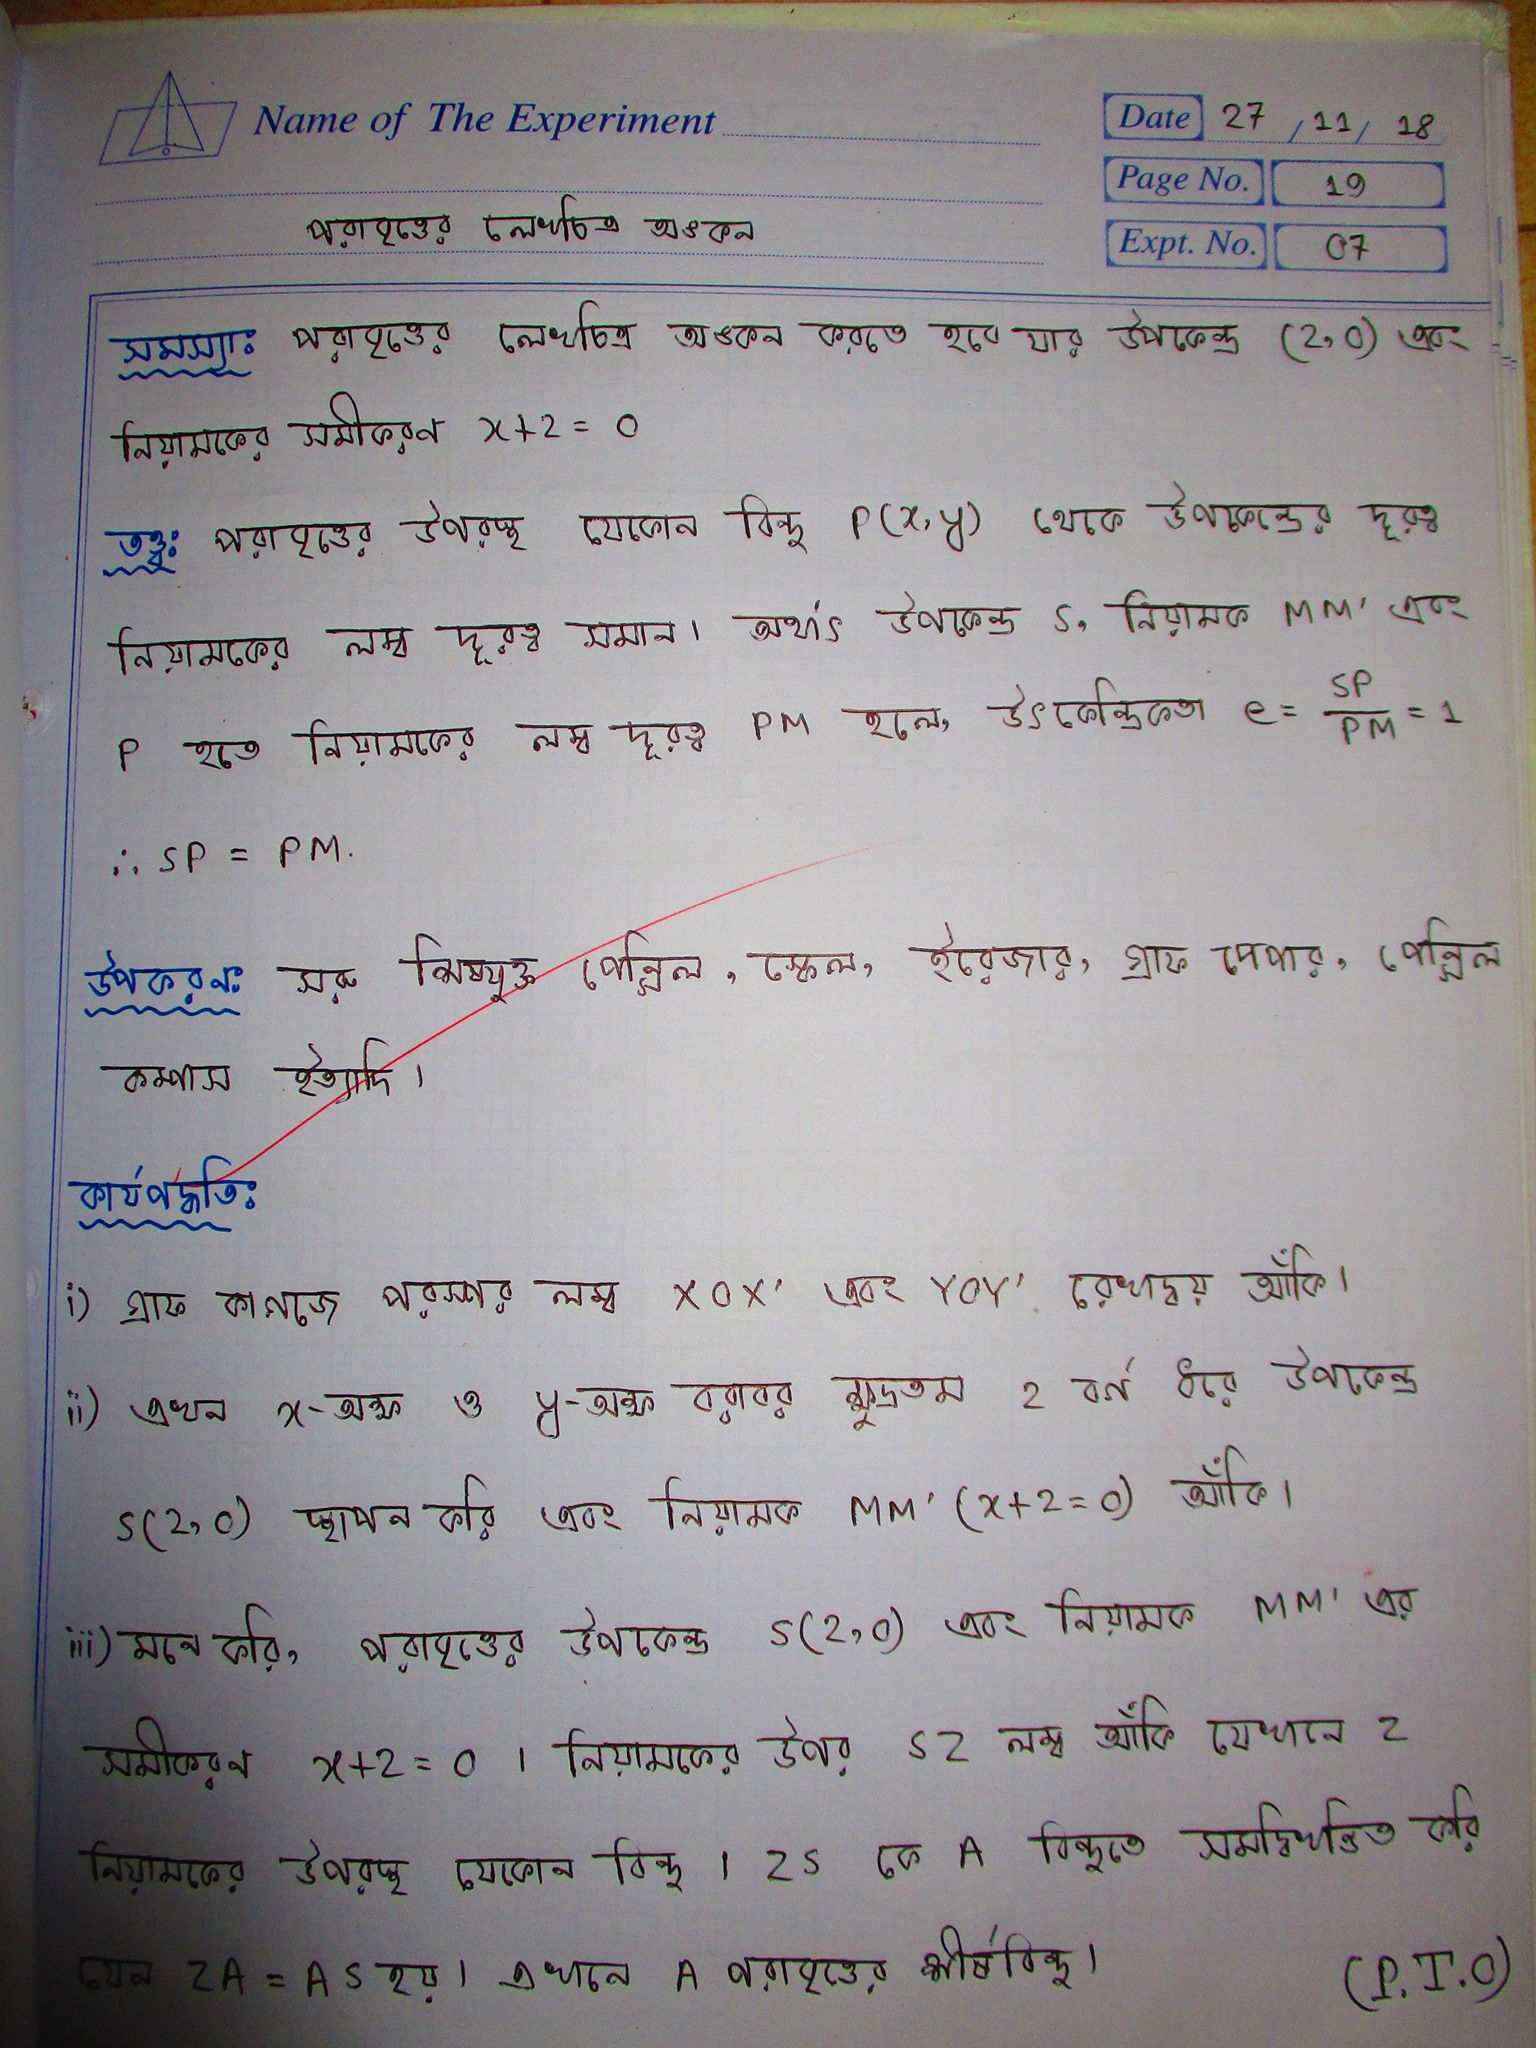 Name of The Experiment
Date 27 / 11 / 18
Page No. 19
পরাবৃত্তের লেখচিত্র অঙকন
Expt. No. 07
সমস্যাঃ পরাবৃত্তের লেখচিত্র অঙকন করতে হবে যার উপকেন্দ্র (2,0) এবং
নিয়ামকের সমীকরণ x+2 = 0
তত্ত্বঃ পরাবৃত্তের উপরস্থ যেকোন বিন্দু P(x,y) থেকে উপকেন্দ্রের দূরত্ব
নিয়ামকের লম্ব দূরত্ব সমান। অর্থাৎ উপকেন্দ্র S, নিয়ামক MM' এবং
P হতে নিয়ামকের লম্ব দূরত্ব PM হলে, উৎকেন্দ্রিকতা e = SP/PM = 1
∴ SP = PM.
উপকরণঃ সরু শিষযুক্ত পেন্সিল, স্কেল, ইরেজার, গ্রাফ পেপার, পেন্সিল
কম্পাস ইত্যাদি।
কার্যপদ্ধতিঃ
i) গ্রাফ কাগজে পরস্পর লম্ব XOX' এবং YOY' রেখাদ্বয় আঁকি।
ii) এখন x-অক্ষ ও y-অক্ষ বরাবর ক্ষুদ্রতম 2 বর্গ ধরে উপকেন্দ্র
S(2,0) স্থাপন করি এবং নিয়ামক MM' (x+2=0) আঁকি।
iii) মনে করি, পরাবৃত্তের উপকেন্দ্র S(2,0) এবং নিয়ামক MM' এর
সমীকরণ x+2=0 । নিয়ামকের উপর SZ লম্ব আঁকি যেখানে Z
নিয়ামকের উপরস্থ যেকোন বিন্দু । ZS কে A বিন্দুতে সমদ্বিখন্ডিত করি
যেন ZA = AS হয়। এখানে A পরাবৃত্তের শীর্ষবিন্দু।
(P.T.O)